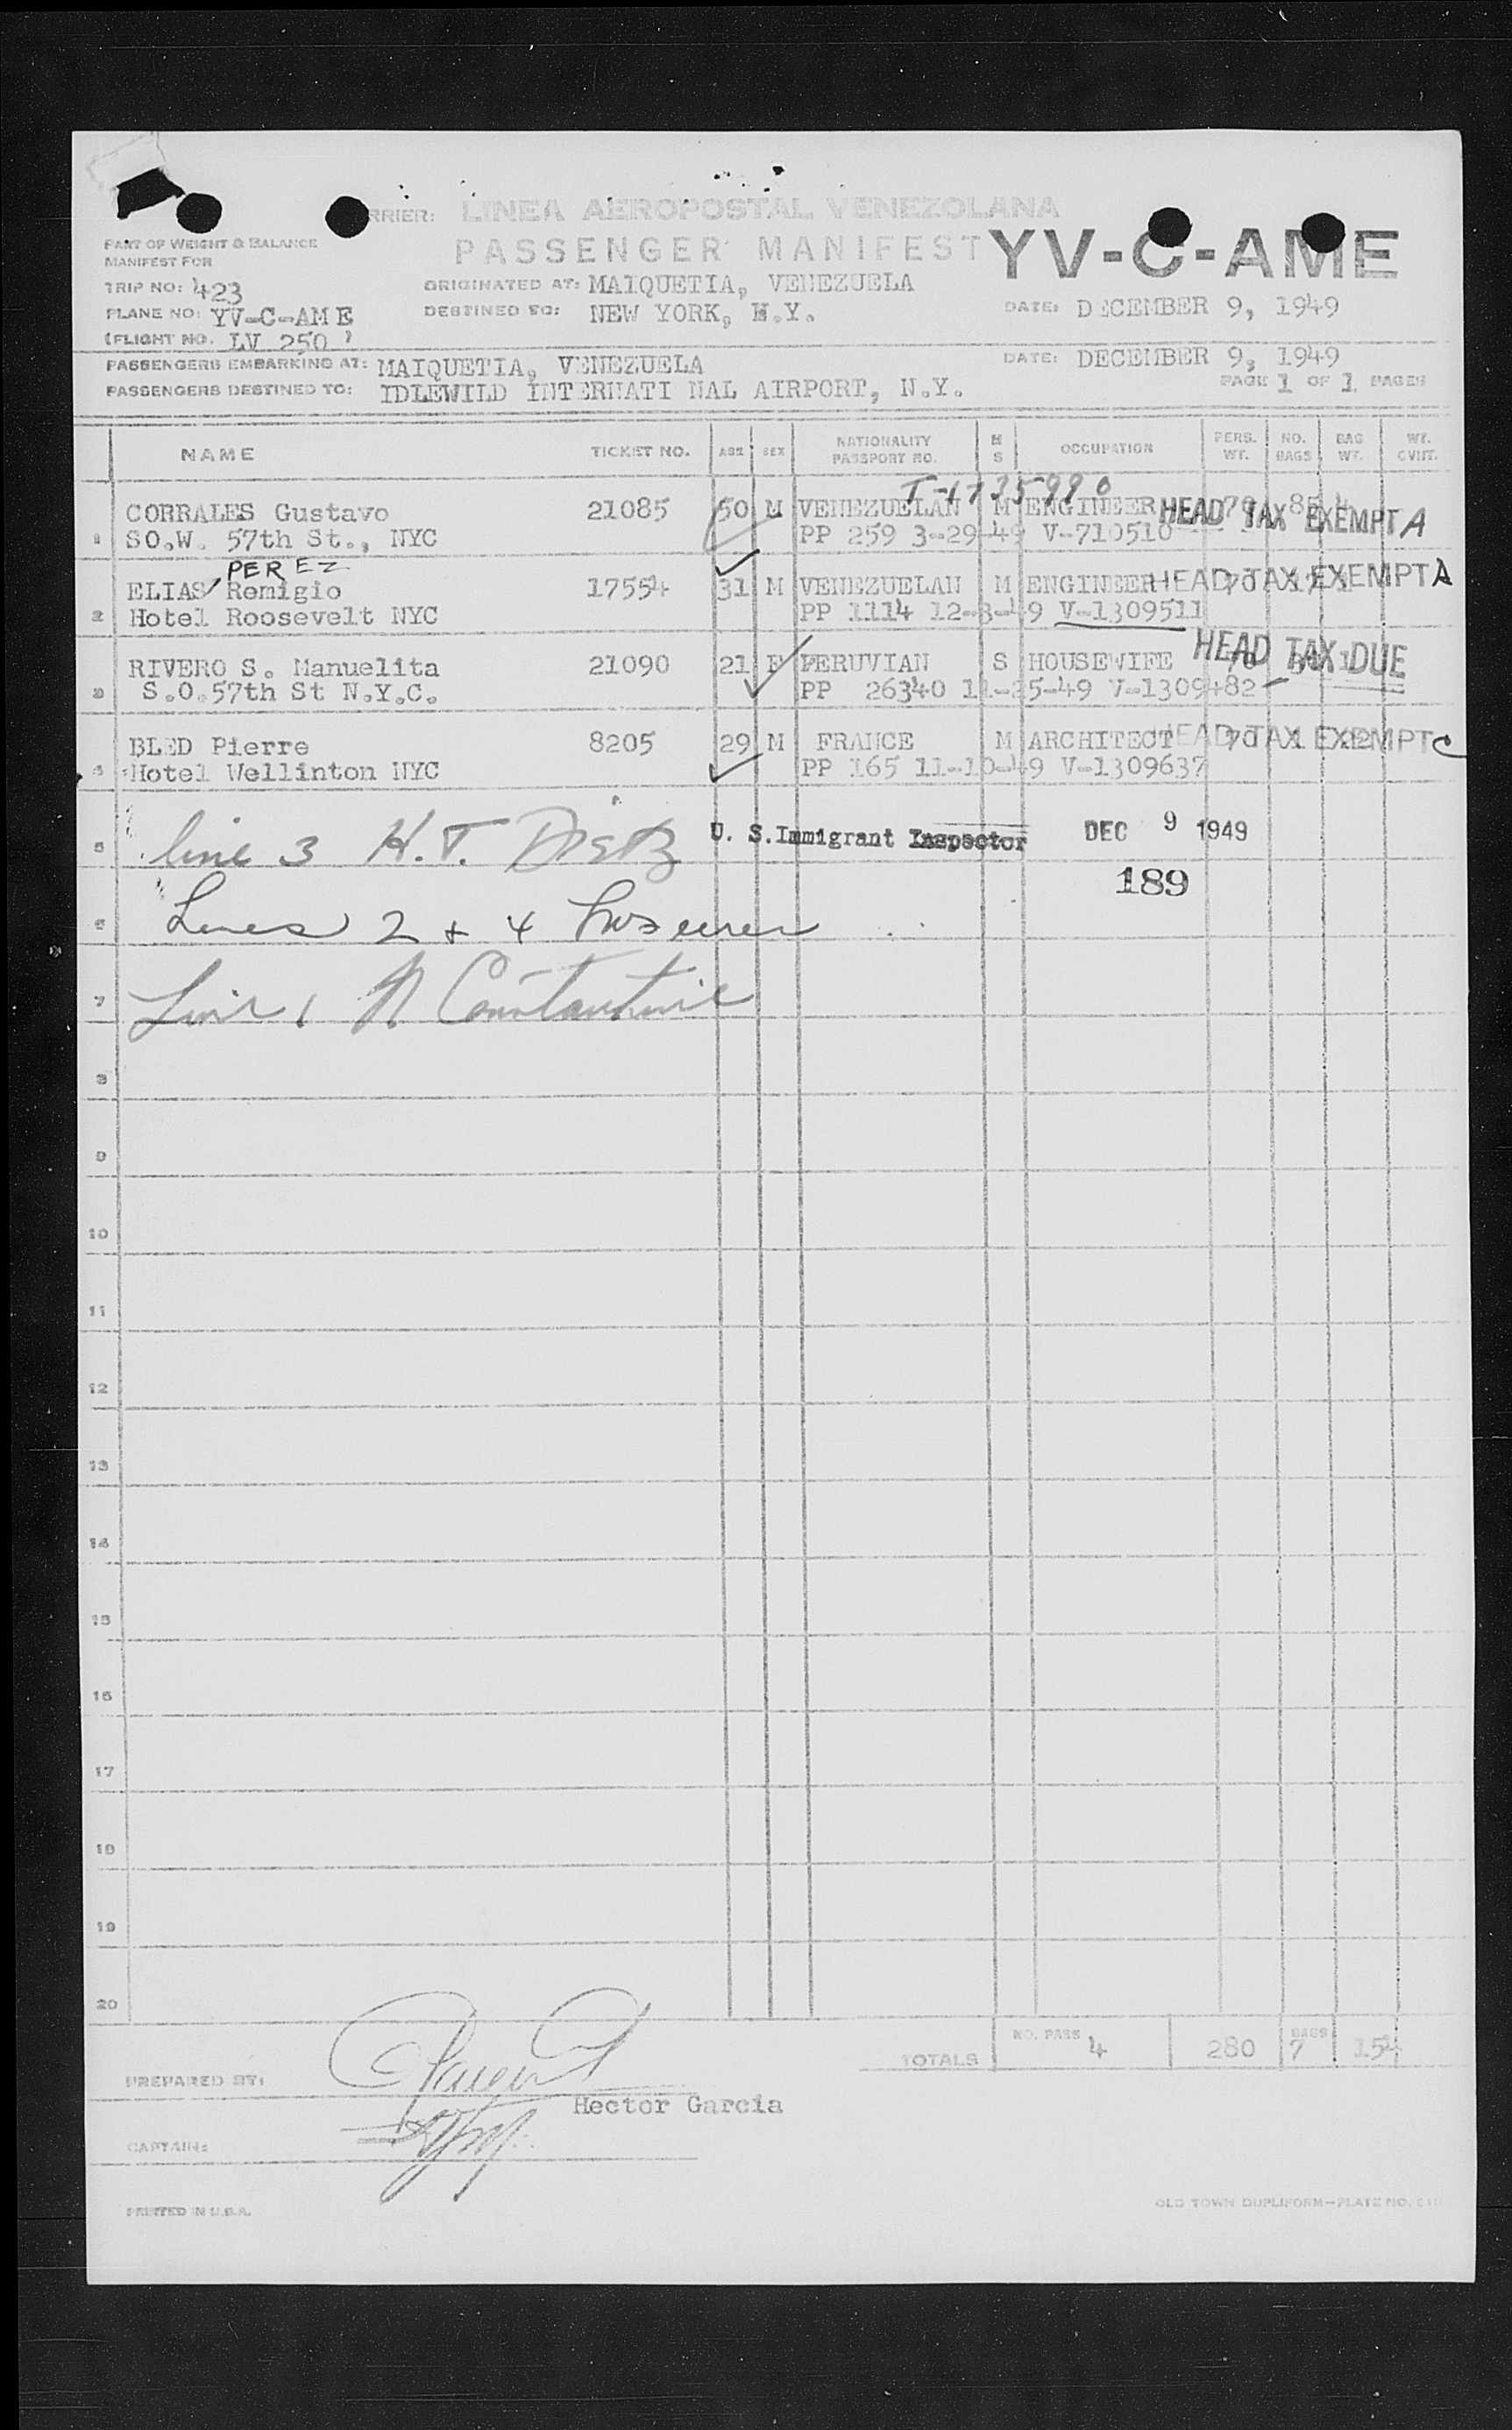 RRIER: LINEA AEROPOSTAL VENEZOLANA
PASSENGER MANIFEST YV-C-AME
PART OF WEIGHT & BALANCE
MANIFEST FOR
TRIP NO: 423
ORIGINATED AT: MAIQUETIA, VENEZUELA
PLANE NO: YV-C-AME
DESTINED TO: NEW YORK, N.Y.
DATE: DECEMBER 9, 1949
(FLIGHT NO. LV 250)
PASSENGERS EMBARKING AT: MAIQUETIA, VENEZUELA DATE: DECEMBER 9, 1949
PASSENGERS DESTINED TO: IDLEWILD INTERNATI NAL AIRPORT, N.Y. PAGE 1 OF 1 PAGES
NAME TICKET NO. AGE SEX NATIONALITY PASSPORT NO. M S OCCUPATION PERS. WT. NO. BAGS BAG WT. WT. CVHT.
T-1735990
1 CORRALES Gustavo 21085 50 M VENEZUELAN M ENGINEER HEAD TAX EXEMPT A
SO.W. 57th St., NYC PP 259 3-29-49 V-710510
PEREZ
2 ELIAS Remigio 17554 31 M VENEZUELAN M ENGINEER HEAD TAX EXEMPT A
Hotel Roosevelt NYC PP 1114 12-3-49 V-1309511
3 RIVERO S. Manuelita 21090 21 F PERUVIAN S HOUSEWIFE HEAD TAX DUE
S.O.57th St N.Y.C. PP 26340 11-25-49 V-1309482
4 BLED Pierre 8205 29 M FRANCE M ARCHITECT HEAD TAX EXEMPT C
Hotel Wellinton NYC PP 165 11-10-49 V-1309637
5 line 3 H.T. Dietz U. S. Immigrant Inspector DEC 9 1949
189
6 Lines 2 + 4
7 Line 1 N Constantine
8
9
10
11
12
13
14
15
16
17
18
19
20
TOTALS NO. PASS 4 280 BAGS 7 154
PREPARED BY:
Hector Garcia
CAPTAIN:
PRINTED IN U.S.A.
OLD TOWN DUPLIFORM—PLATE NO.